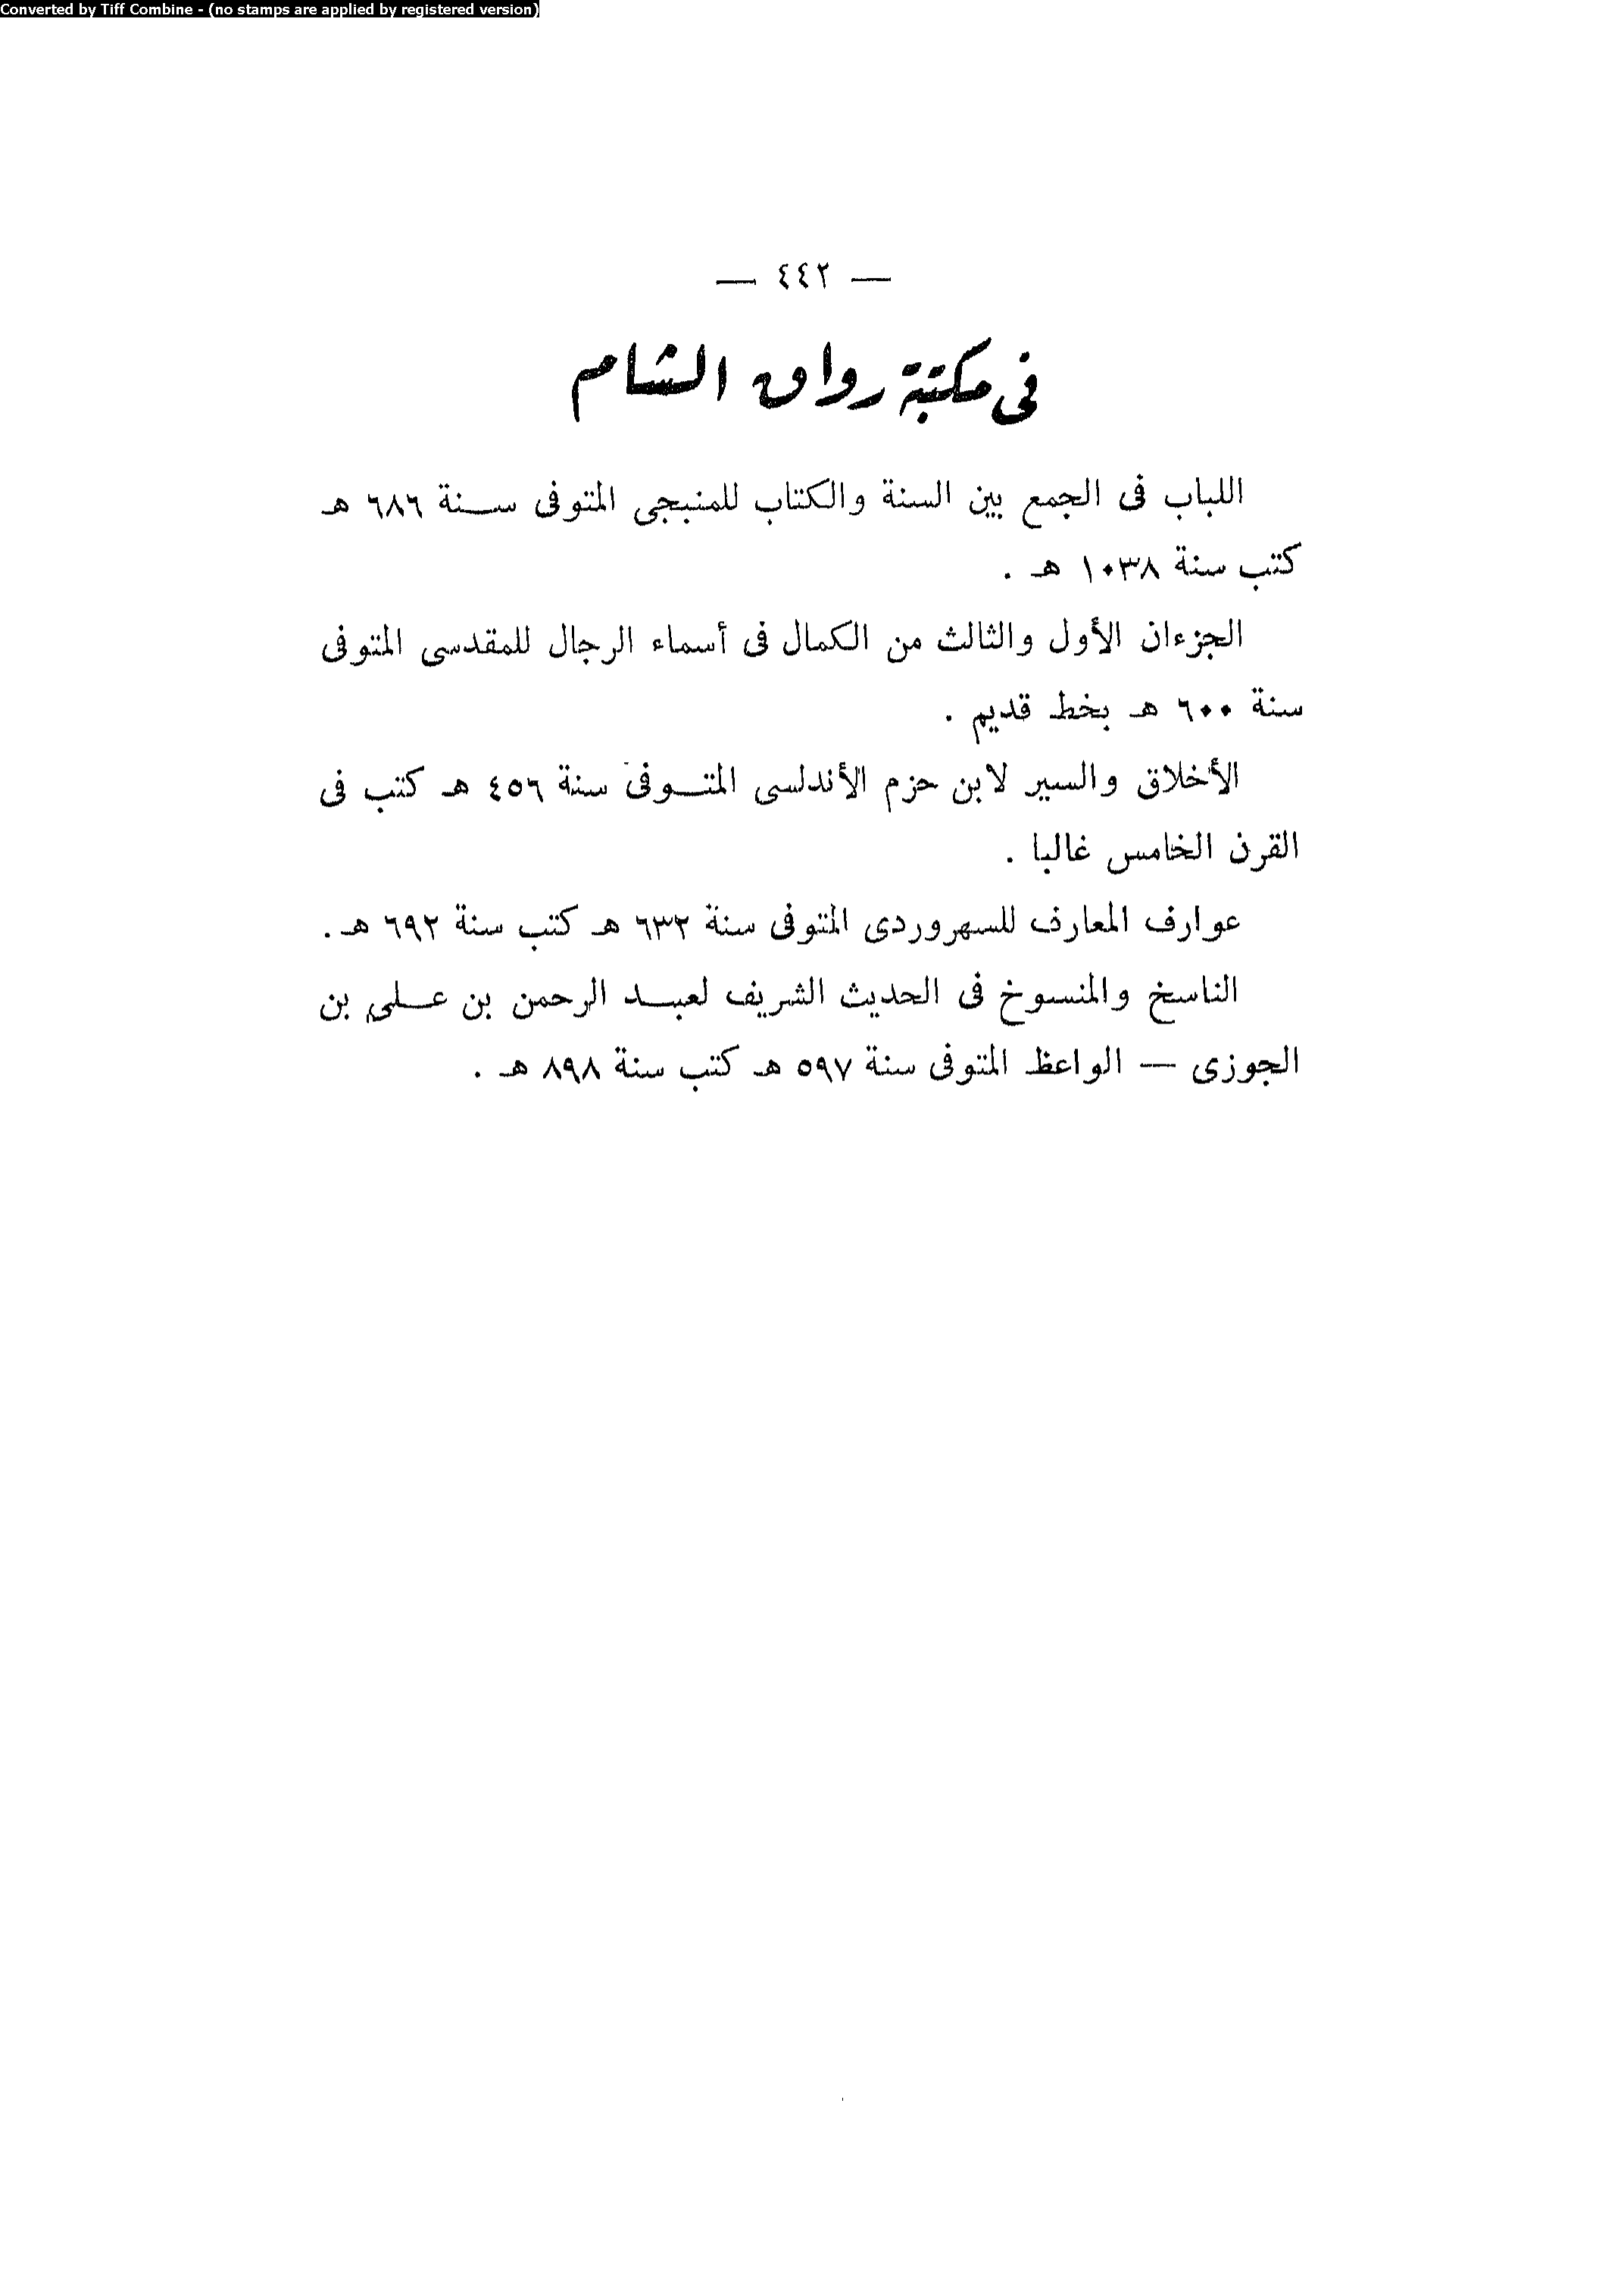 Converted by Tiff Combine - (no stamps are applied by registered version)
— ٤٤٢ —
فى مكتبة رواق الشام
اللباب فى الجمع بين السنة والكتاب للمنبجى المتوفى سـنة ٦٨٦ هـ
كتب سنة ١٠٣٨ هـ .
الجزءان الأول والثالث من الكمال فى أسماء الرجال للمقدسى المتوفى
سنة ٦٠٠ هـ بخط قديم .
الأخلاق والسير لابن حزم الأندلسى المتـوفى سنة ٤٥٦ هـ كتب فى
القرن الخامس غالبا .
عوارف المعارف للسهروردى المتوفى سنة ٦٣٢ هـ كتب سنة ٦٩٢ هـ .
الناسخ والمنسوخ فى الحديث الشريف لعبـد الرحمن بن عـلى بن
الجوزى — الواعظ المتوفى سنة ٥٩٧ هـ كتب سنة ٨٩٨ هـ .